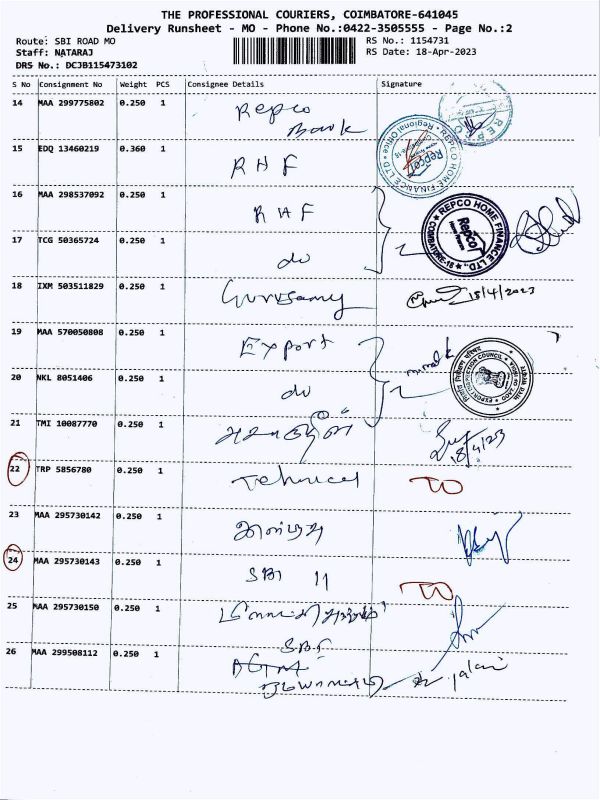 THE PROFESSIONAL COURIERS, COIMBATORE-641045
Delivery Runsheet - MO - Phone No.:0422-3505555 - Page No.:2
Route: SBI ROAD MO RS No.: 1154731
Staff: NATARAJ RS Date: 18-Apr-2023
DRS No.: DCJB115473102
S No Consignment No Weight PCS Consignee Details Signature
14 MAA 299775802 0.250 1 Repco
Bank
15 EDQ 13460219 0.360 1 RHF
REPCO HOME FINANCE LTD
Regional Office
Repco
16 MAA 298537092 0.250 1 RHF
REPCO HOME FINANCE LTD.
Repco
Home Finance
COIMBATORE-18
17 TCG 50365724 0.250 1 do
18 IXM 503511829 0.250 1 Gurusamy 18/4/2023
19 MAA 570050808 0.250 1 Export
EXPORT INSPECTION COUNCIL
20 NKL 8051406 0.250 1 do
21 TMI 10087770 0.250 1 18/4/23
22 TRP 5856780 0.250 1 Technical TO
23 MAA 295730142 0.250 1
24 MAA 295730143 0.250 1 SBI 11 TO
25 MAA 295730150 0.250 1
SBI
26 MAA 299508112 0.250 1